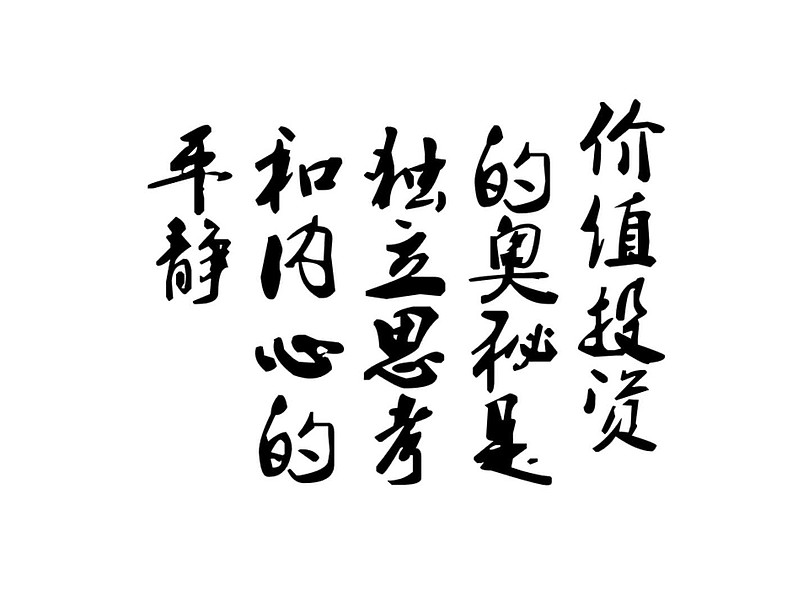 价值投资
的奥秘是
独立思考
和内心的
平静